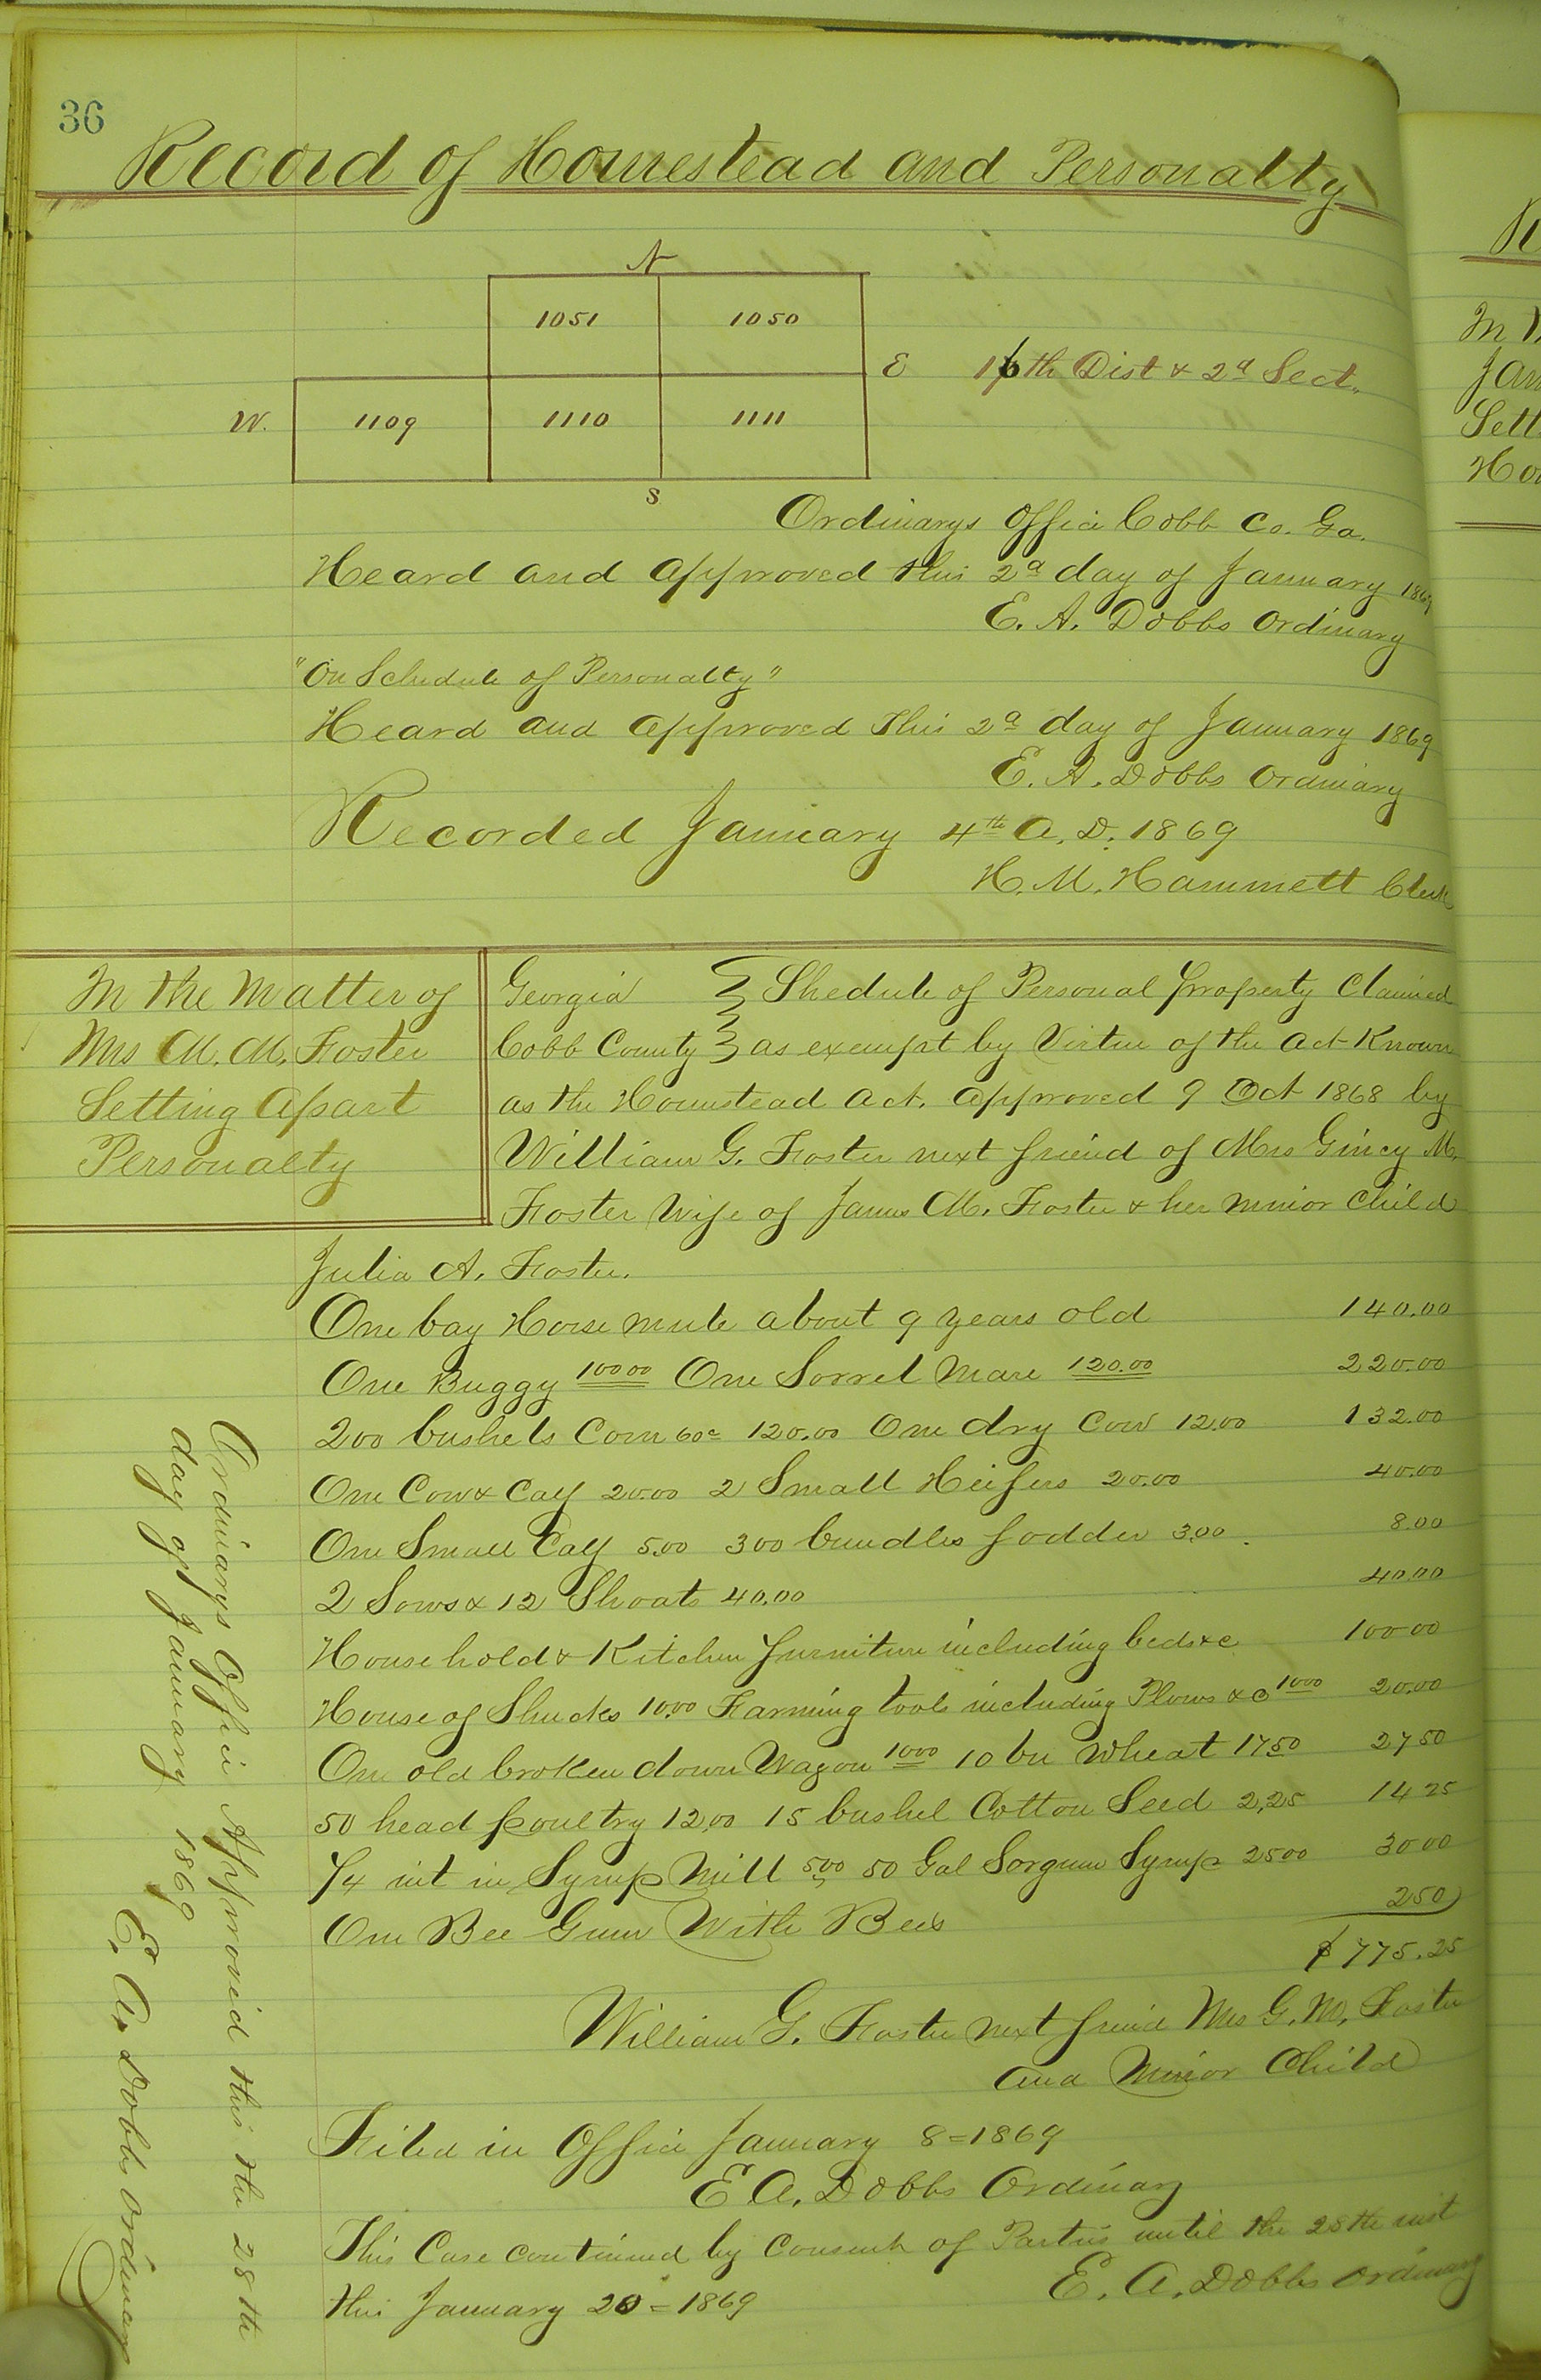 36
Record of Homestead and Personalty
N
1051 1050
E 16th Dist & 2d Sect.
W. 1109 1110 1111
S
Ordinarys Office Cobb Co. Ga.
Heard and approved this 2d day of January 1869
E. A. Dobbs Ordinary
"On Schedule of Personalty"
Heard and approved This 2d day of January 1869
E. A. Dobbs Ordinary
Recorded January 4th A. D. 1869
H. M. Hammett Clerk
In the Matter of
Mrs M. M. Foster
Setting Apart
Personalty
Georgia } Shedule of Personal Property Claimed
Cobb County } as exempt by Virtue of the act Known
as the Homestead act. approved 9 Oct 1868 by
William G. Foster next friend of Mrs Gincy M.
Foster Wife of James M. Foster & her minor Child
Julia A. Foster.
One bay Horse mule about 9 years old 140.00
One Buggy 100 00 One Sorrel Mare 120.00 220.00
200 bushels Corn 60c 120.00 One dry Cow 12.00 132.00
One Cow & Calf 20.00 2 Small Heifers 20.00 40.00
One Small Calf 5.00 300 bundles fodder 3.00. 8.00
2 Sows & 12 Shoats 40.00 40.00
Household & Kitchen furniture including beds &c 100 00
House of Shucks 10.00 Farming tools including Plows &c 10 00 20.00
One old broken down Wagon 10 00 10 bu Wheat 17 50 27 50
50 head poultry 12.00 15 bushel Cotton Seed 2.25 14 25
1/4 int in Syrup Mill 5 00 50 Gal Sorgum Syrup 25 00 30 00
One Bee Gum With Bees 2 50
$ 775.25
William G. Foster next friend Mrs G. M. Foster
and Minor Child
Filed in Office January 8 = 1869
E A. Dobbs Ordinary
This Case continued by Consent of Parties until the 28th inst
this January 20 = 1869 E. A. Dobbs Ordinary
Ordinarys Office Approved this the 28th
day of January 1869
E. A. Dobbs Ordinary